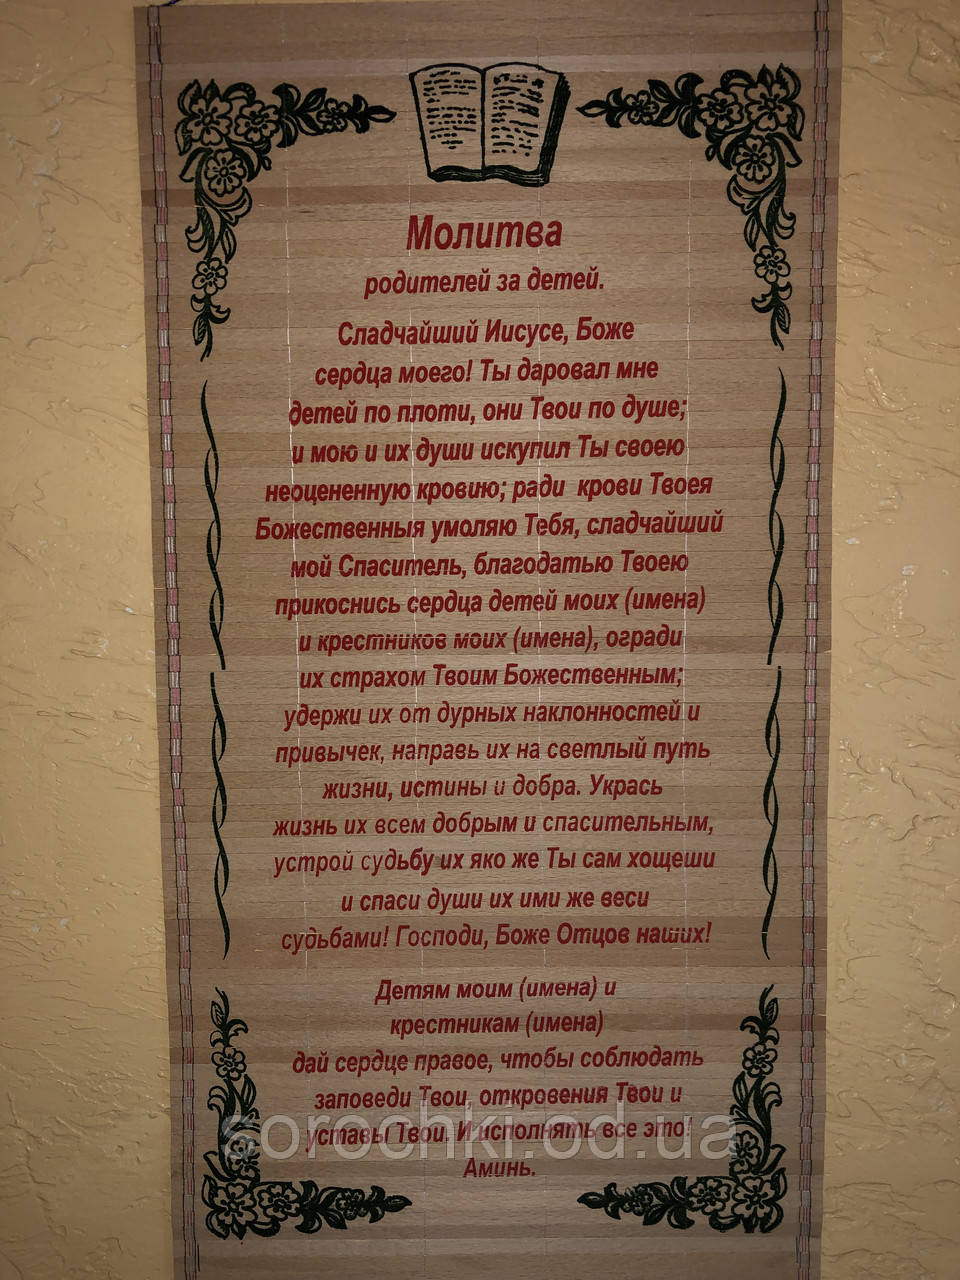 Молитва
родителей за детей.
Сладчайший Иисусе, Боже
сердца моего! Ты даровал мне
детей по плоти, они Твои по душе;
и мою и их души искупил Ты своею
неоцененную кровию; ради крови Твоея
Божественныя умоляю Тебя, сладчайший
мой Спаситель, благодатью Твоею
прикоснись сердца детей моих (имена)
и крестников моих (имена), огради
их страхом Твоим Божественным;
удержи их от дурных наклонностей и
привычек, направь их на светлый путь
жизни, истины и добра. Укрась
жизнь их всем добрым и спасительным,
устрой судьбу их яко же Ты сам хощеши
и спаси души их ими же веси
судьбами! Господи, Боже Отцов наших!
Детям моим (имена) и
крестникам (имена)
дай сердце правое, чтобы соблюдать
заповеди Твои, откровения Твои и
уставы Твои. И исполнять все это!
Аминь.
sorochki.od.ua